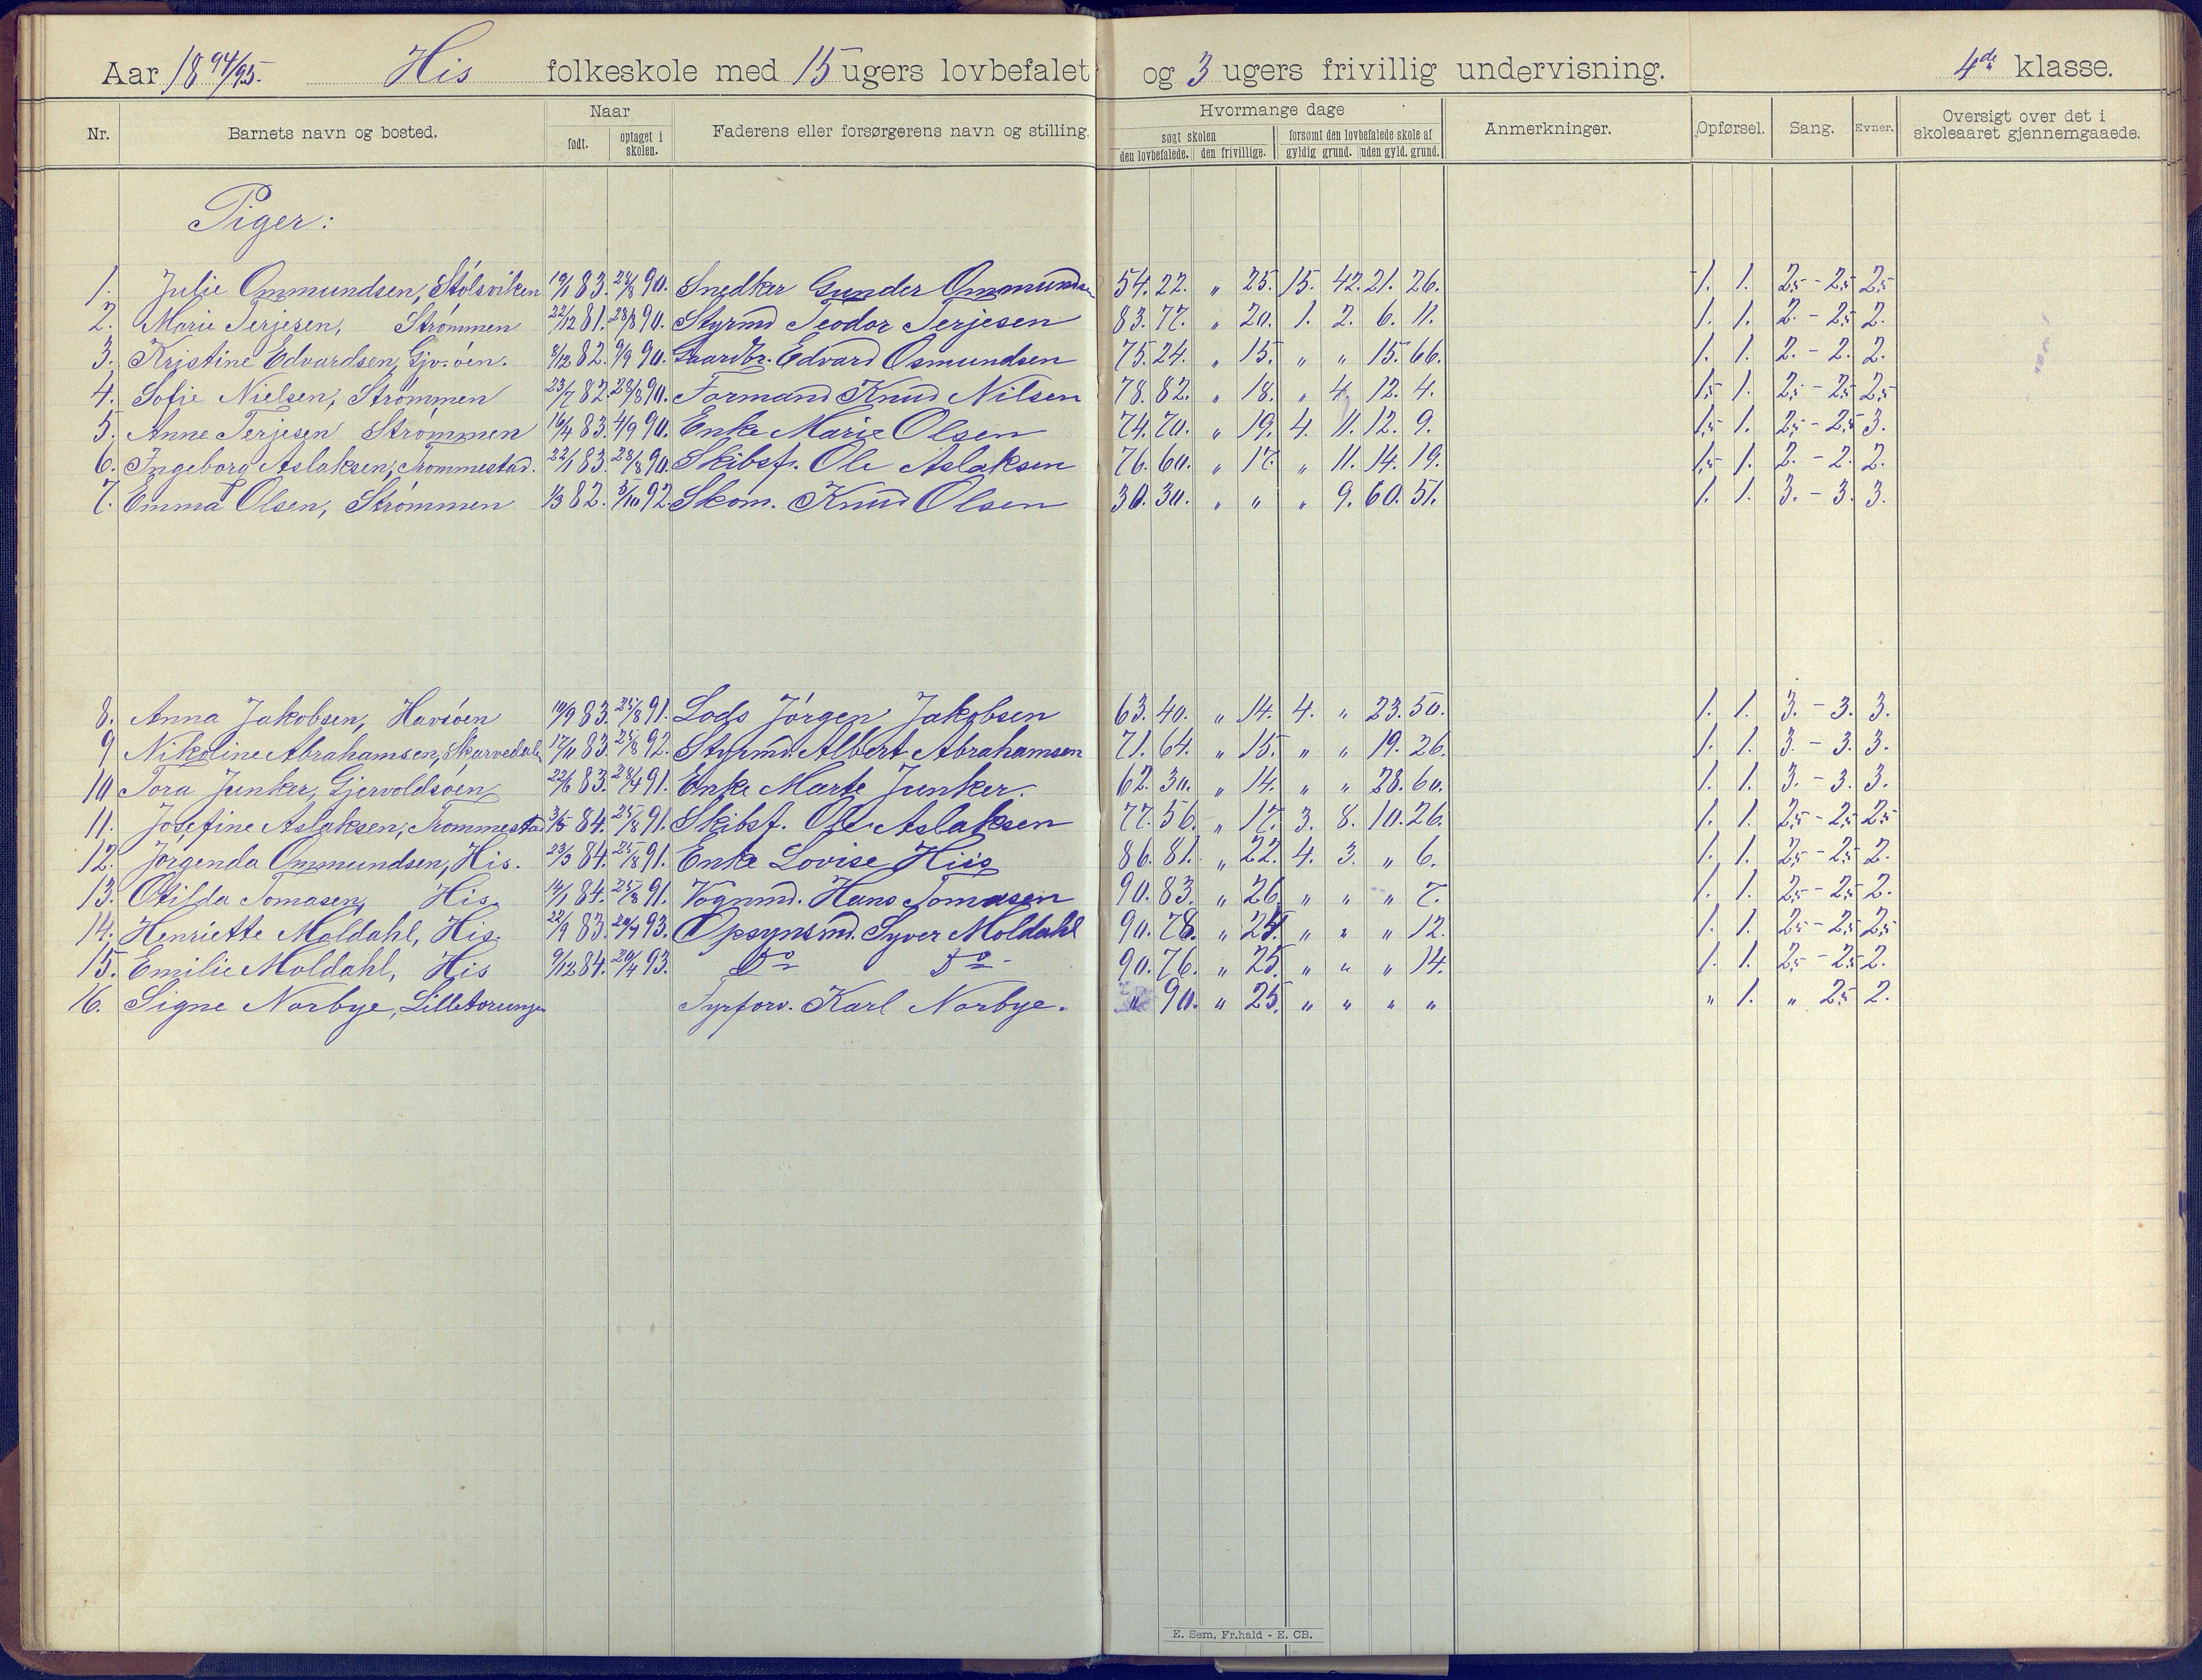 Aar 1894/95. His folkeskole med 15 ugers lovbefalet og 3 ugers frivillig undervisning. 4de klasse.
Nr. Barnets navn og bosted. Naar født. optaget i skolen. Faderens eller forsørgerens navn og stilling. Hvormange dage søgt skolen den lovbefalede. den frivillige. forsømt den lovbefalede skole af gyldig grund. uden gyld. grund. Anmerkninger. Opførsel. Sang. Evner. Oversigt over det i skoleaaret gjennemgaaede.
Piger:
1. Julie Ommundsen, Stølsviken 19/1 83. 28/8 90. Snedker Gunder Ommundsen 54. 22. " 25. 15. 42. 21. 26. 1. 1. 2,5 - 2,5 2,5
2. Marie Terjesen, Strømmen 22/12 81. 28/8 90. Styrmd Teodor Terjesen 83. 77. " 20. 1. 2. 6. 11. 1. 1. 2. - 2,5 2.
3. Kristine Edvardsen, Gjv.øen. 8/12 82. 9/9 90. Gaardbr. Edvard Osmundsen 75. 24. " 15. " " 15. 66. 1. 1. 2. - 2. 2.
4. Sofie Nielsen, Strømmen 23/7 82. 28/8 90. Formand Knud Nilsen 78. 82. " 18. " 4. 12. 4. 1,5 1. 2,5 - 2,5 2,5
5. Anne Terjesen Strømmen 16/4 83. 4/9 90. Enke Marie Olsen 74. 70. " 19. 4. 11. 12. 9. 1,5 1. 2,5 - 2,5 3.
6. Ingeborg Aslaksen, Trommestad. 22/1 83. 28/8 90. Skibsf. Ole Aslaksen 76. 60. " 17. " 11. 14. 19. 1,5 1. 2. - 2. 2.
7. Emma Olsen, Strømmen 1/3 82. 5/10 92. Skom. Knud Olsen 30. 30. " " " 9. 60. 51. 1. 1. 3. - 3. 3.
8. Anna Jakobsen, Havsøen 10/9 83. 25/8 91. Lods Jørgen Jakobsen 63. 40. " 14. 4. " 23. 50. 1. 1. 3. - 3. 3.
9 Nikoline Abrahamsen, Skarvedalen 17/11 83. 25/8 92. Styrmd. Albert Abrahamsen 71. 64. " 15. " " 19. 26. 1. 1. 3. - 3. 3.
10 Tora Junker, Gjervoldsøen 22/6 83. 28/4 91. Enke Marte Junker. 62. 30. " 14. " " 28. 60. 1. 1. 3. - 3. 3.
11. Josefine Aslaksen, Trommestad 3/5 84. 25/8 91. Skibsf. Ole Aslaksen 77. 56. " 17. 3. 8. 10. 26. 1. 1. 2,5 - 2,5 2,5
12. Jørgenda Ommundsen, His. 23/3 84. 25/8 91. Enke Lovise Hiis 86. 81. " 22. 4. 3. " 6. 1. 1. 2,5 - 2,5 2.
13. Otilda Tomasen, His. 14/1 84. 25/8 91. Vognmd. Hans Tomasen 90. 83. " 26 " " " 7. 1. 1. 2,5 - 2,5 2.
14. Henriette Moldahl, His. 22/9 83. 20/4 93. Opsynsmd. Syver Moldahl 90. 78. " 24. " " " 12. 1. 1. 2,5 - 2,5 2,5
15. Emilie Moldahl, His 9/12 84. 20/4 93. Do Do 90. 76. " 25. " " " 14. 1. 1. 2,5 - 2,5 2.
16. Signe Norbye, Lilletorungen Fyrforv. Karl Norbye. " 90. " 25. " " " " " 1. " 2,5 2.
E. Sem, Fr.hald - E. CB.